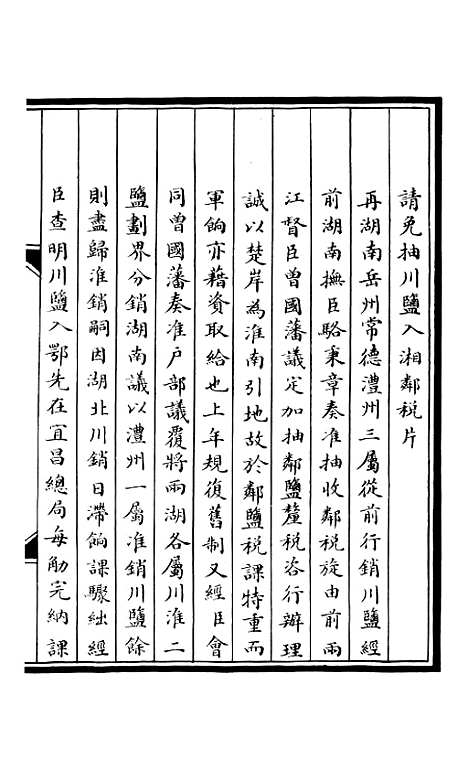 請免抽川鹽入湘鄰稅片
再湖南岳州常德澧州三屬從前行銷川鹽經
前湖南撫臣駱秉章奏准抽收鄰稅旋由前兩
江督臣曾國藩議定加抽鄰鹽釐稅咨行辦理
誠以楚岸為淮南引地故於鄰鹽稅課特重而
軍餉亦藉資取給也上年規復舊制又經臣會
同曾國藩奏准戶部議覆將兩湖各屬川淮二
鹽劃界分銷湖南議以澧州一屬准銷川鹽餘
則盡歸淮銷嗣因湖北川銷日滯餉課驟絀經
臣查明川鹽入鄂先在宜昌總局每觔完納課